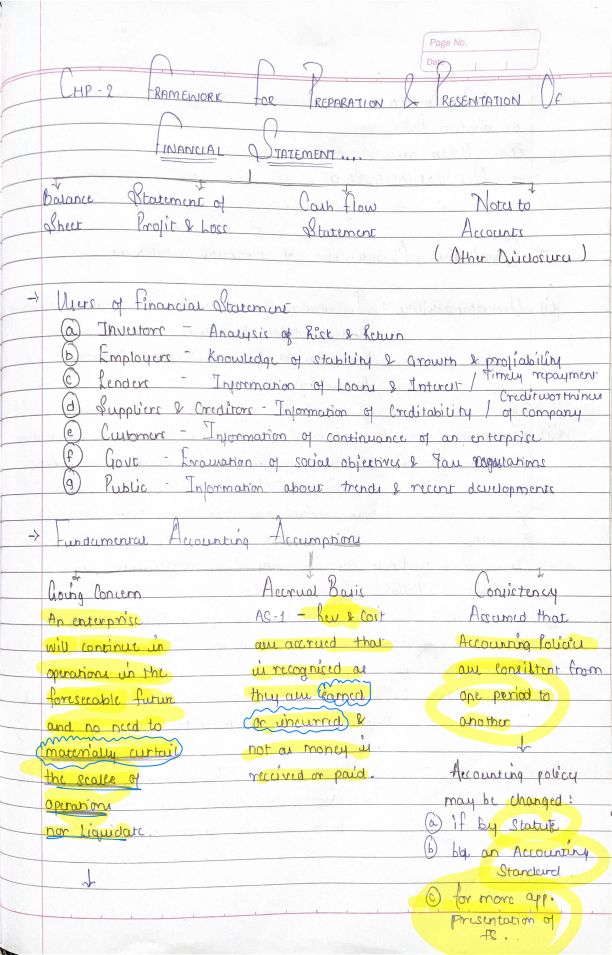 Page No.
Date
CHP-2 FRAMEWORK FOR PREPARATION & PRESENTATION OF
FINANCIAL STATEMENT....
Balance Statement of Cash flow Notes to
Sheet Profit & Loss Statement Accounts
( Other Disclosures )
→ Users of Financial Statement
(a) Investors - Analysis of Risk & Return
(b) Employers - Knowledge of stability & Growth & profiability
(c) Lenders - Information of Loans & Interest / Timely repayment
(d) Suppliers & Creditors - Information of Creditability / Creditworthiness of company
(e) Customers - Information of continuance of an enterprise
(f) Govt - Evaluation of social objectives & Tax regulations
(g) Public - Information about trends & recent developments
→ Fundamental Accounting Assumptions
Going Concern
An enterprise
will continue in
operations in the
foreseeable future
and no need to
materially curtail
the scales of
operations
nor Liquidate
↓
Accrual Basis
AS-1 - Rev & Cost
are accrued that
is recognised as
they are earned
or incurred &
not as money is
received or paid.
Consistency
Assumed that
Accounting Policies
are consistent from
one period to
another
↓
Accounting policy
may be changed :
(a) if by Statute
(b) by an Accounting
Standard
(c) for more app.
Presentation of
fs.